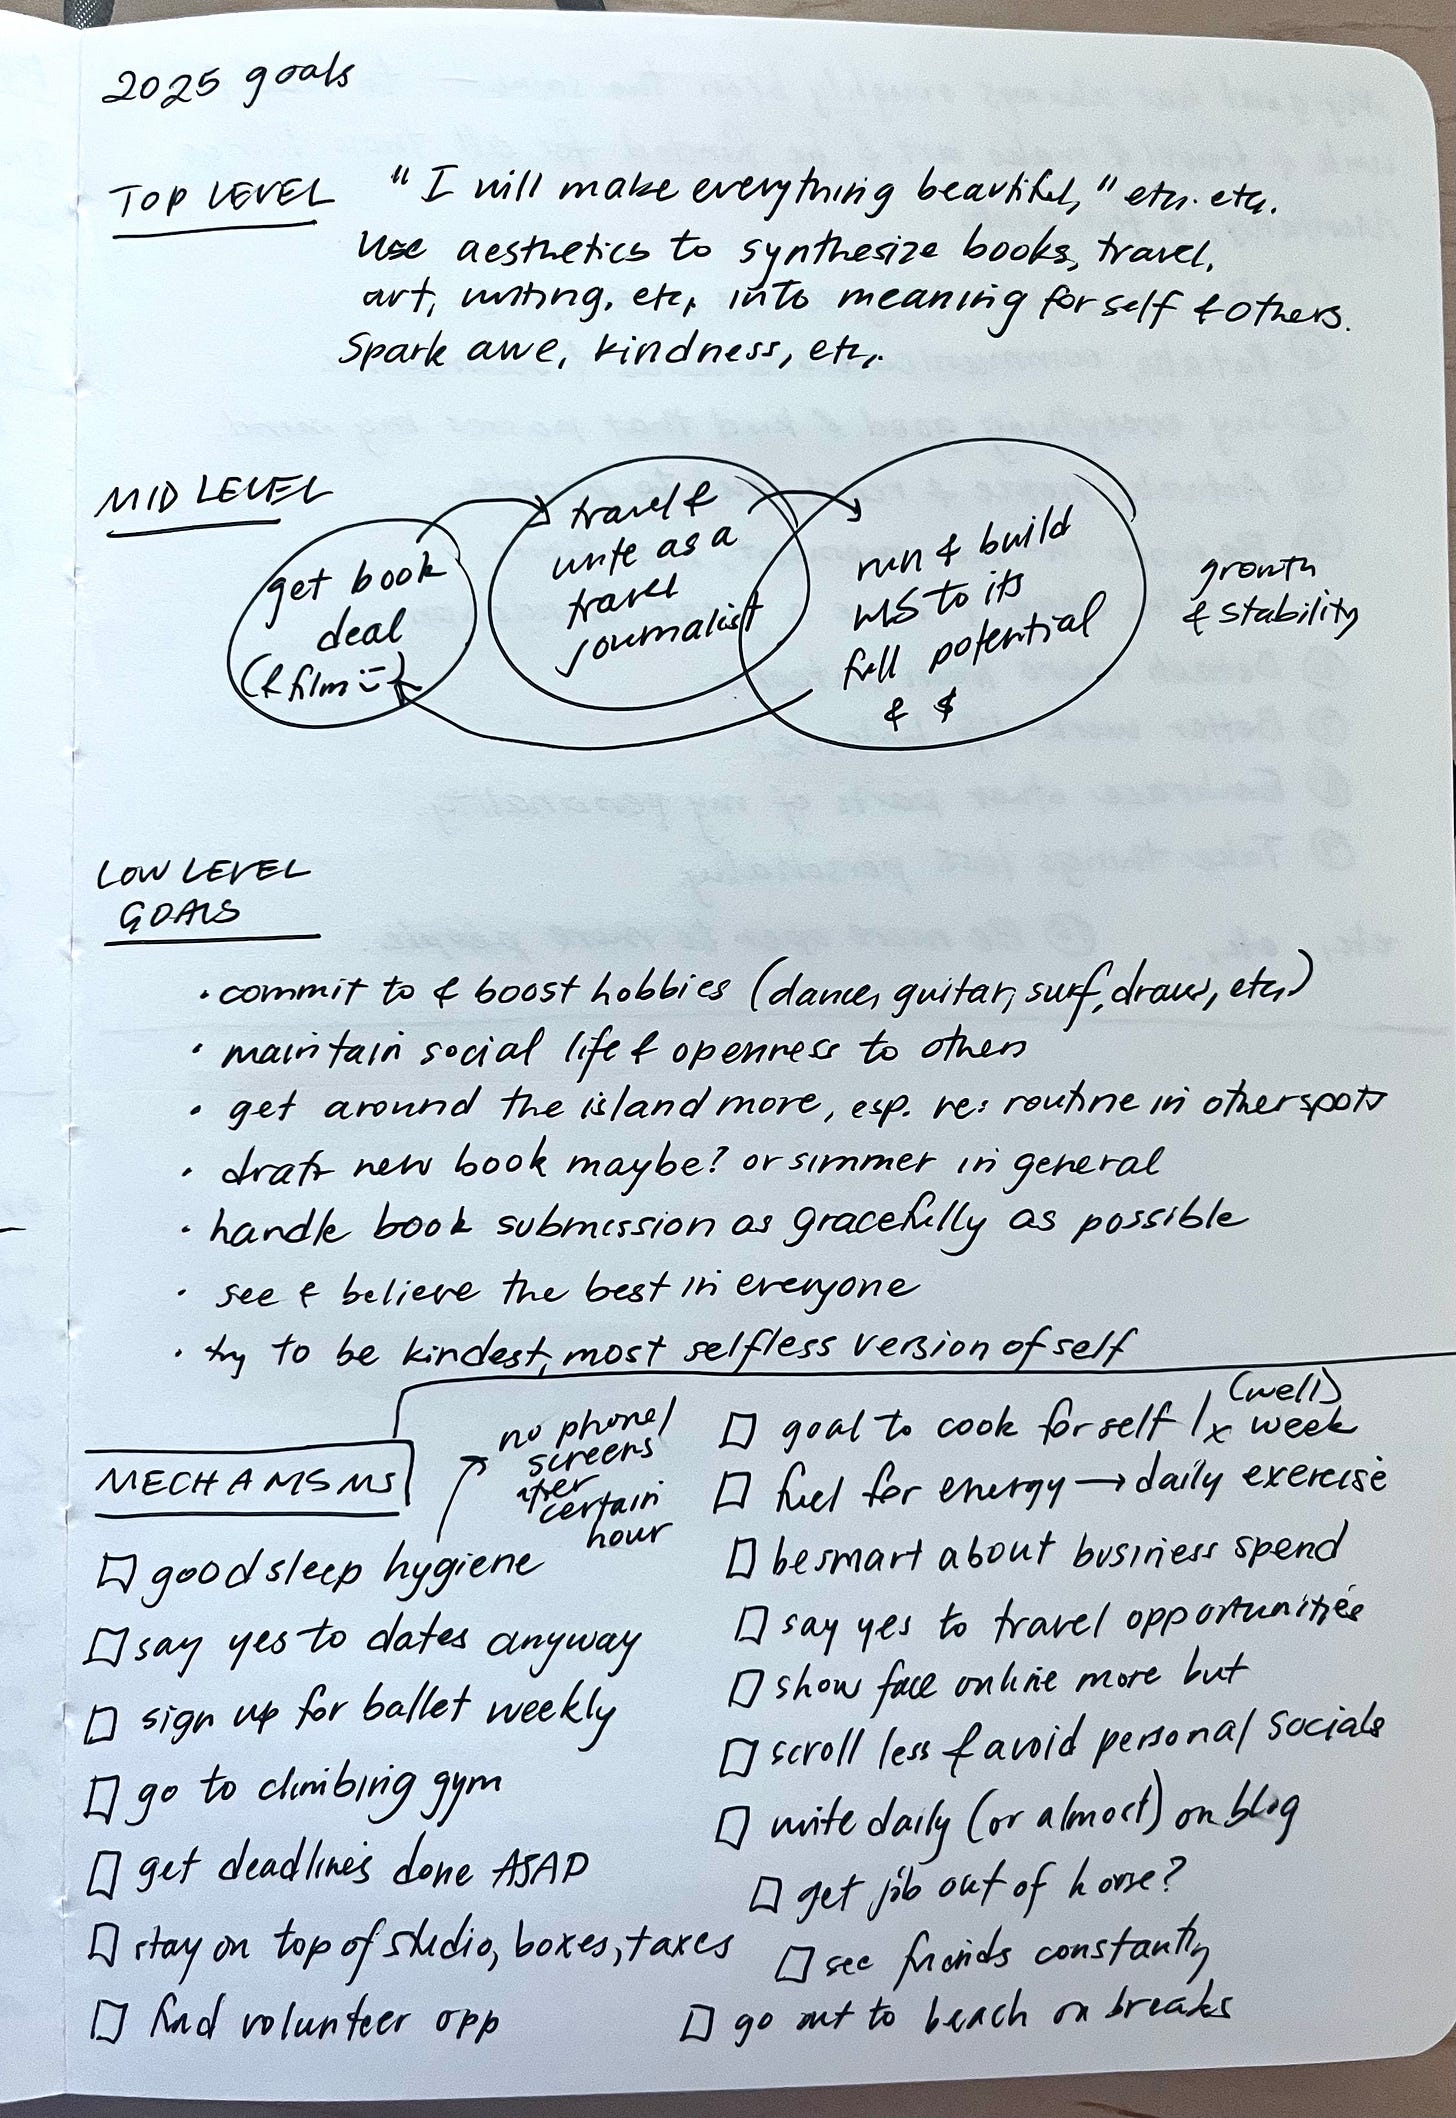 2025 goals
TOP LEVEL
"I will make everything beautiful," etc. etc.
Use aesthetics to synthesize books, travel,
art, writing, etc, into meaning for self & others.
Spark awe, kindness, etc,.
MID LEVEL
get book
deal
(& film :)
travel &
write as a
travel
journalist
run & build
WS to its
full potential
& $
growth
& stability
LOW LEVEL
GOALS
• commit to & boost hobbies (dance, guitar, surf, draw, etc,)
• maintain social life & openness to others
• get around the island more, esp. re: routine in other spots
• draft new book maybe? or simmer in general
• handle book submission as gracefully as possible
• see & believe the best in everyone
• try to be kindest, most selfless version of self
MECHANISMS
no phone/
screens
after
certain
hour
☐ good sleep hygiene
☐ say yes to dates anyway
☐ sign up for ballet weekly
☐ go to climbing gym
☐ get deadlines done ASAP
☐ stay on top of studio, boxes, taxes
☐ find volunteer opp
☐ goal to cook for self 1x week
(well)
☐ fuel for energy → daily exercise
☐ be smart about business spend
☐ say yes to travel opportunities
☐ show face online more but
☐ scroll less & avoid personal socials
☐ write daily (or almost) on blog
☐ get job out of house?
☐ see friends constantly
☐ go out to beach on breaks